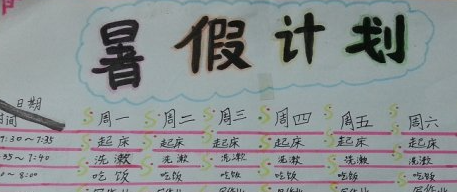 暑假计划
日期
时间 周一 周二 周三 周四 周五 周六
7:30~7:35 起床 起床 起床 起床 起床 起床
35~7:40 洗漱 洗漱 洗漱 洗漱 洗漱 洗漱
~8:00 吃饭 吃饭 吃饭 吃饭 吃饭 吃饭